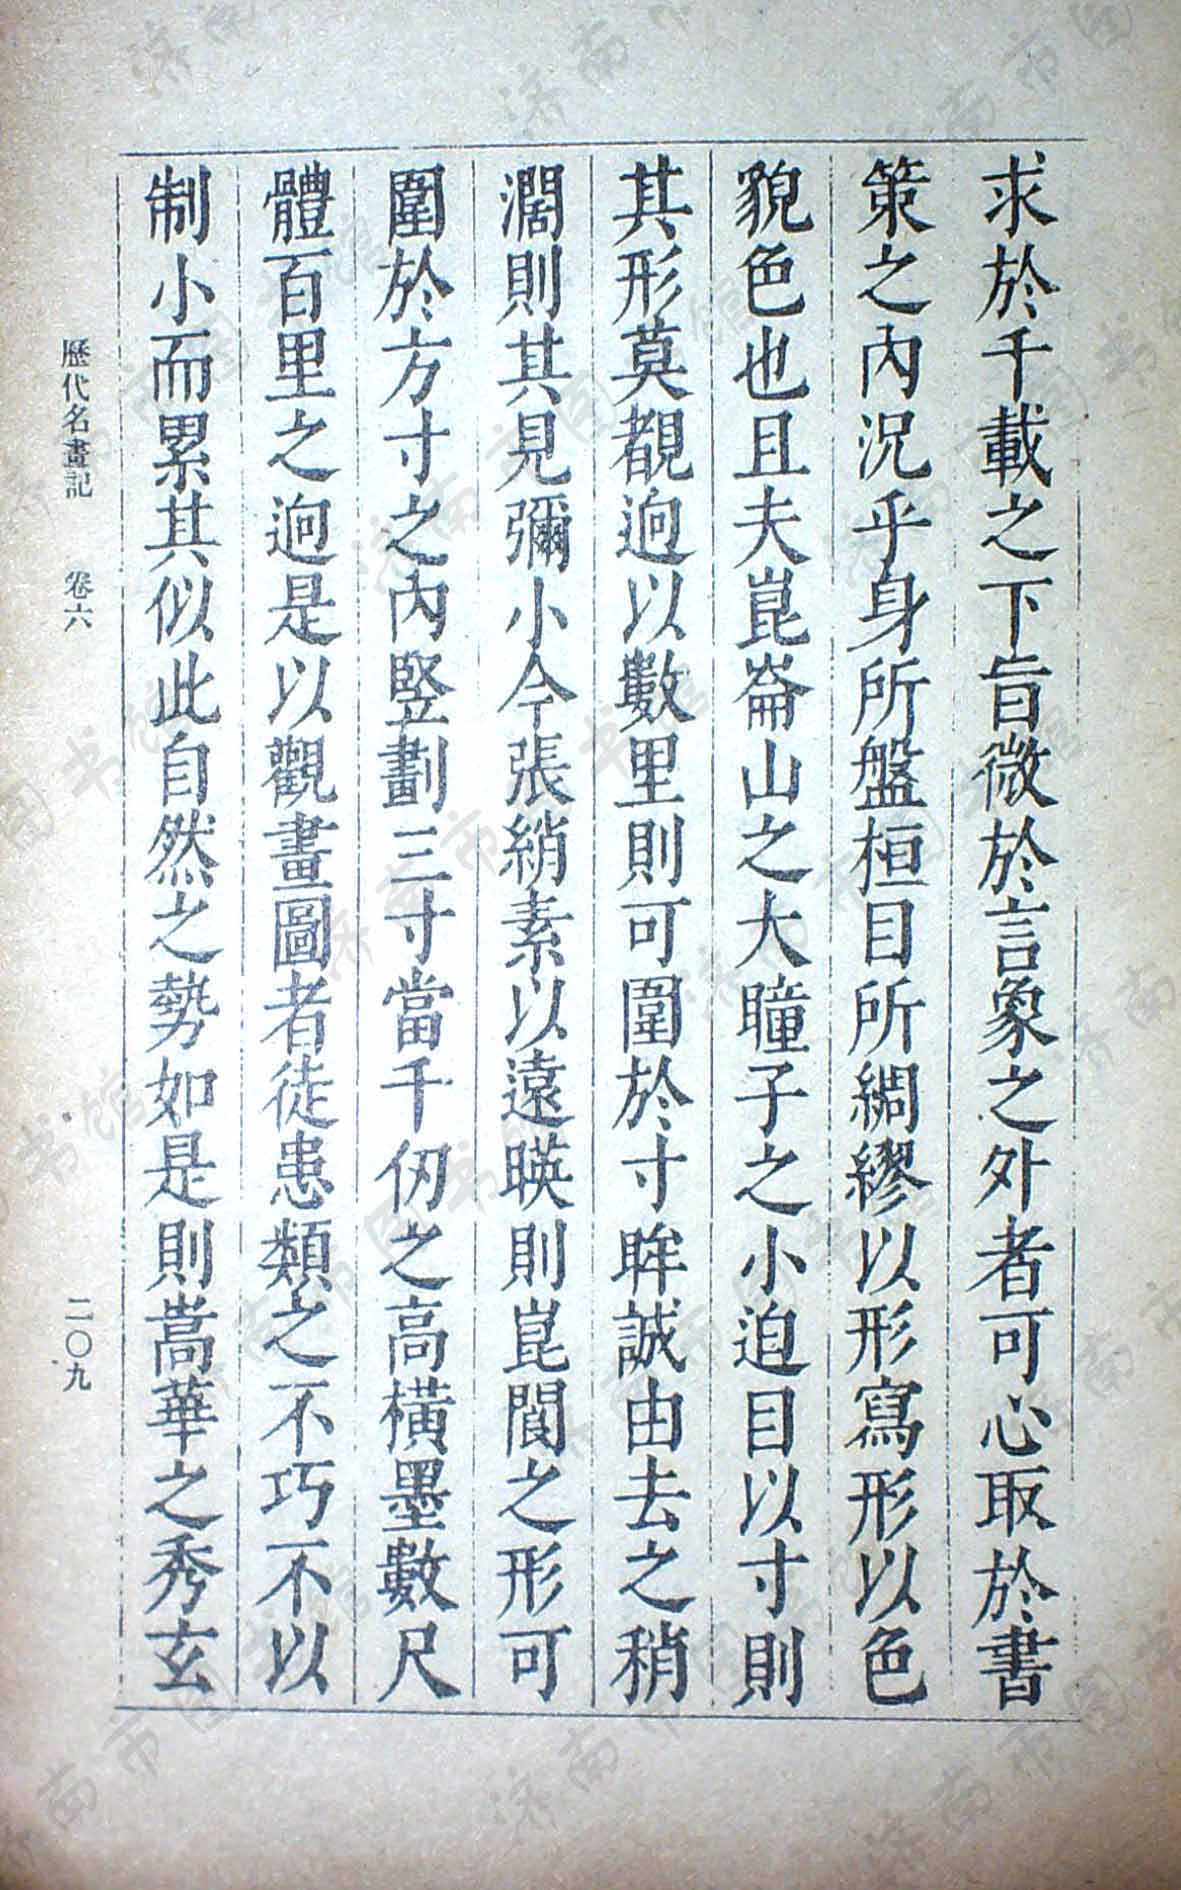 求於千載之下旨微於言象之外者可心取於書
策之內況乎身所盤桓目所綢繆以形寫形以色
貌色也且夫崑崙山之大瞳子之小迫目以寸則
其形莫覩逈以數里則可圍於寸眸誠由去之稍
濶則其見彌小今張綃素以遠暎則崑閬之形可
圍於方寸之內竪劃三寸當千仞之高橫墨數尺
體百里之逈是以觀畫圖者徒患類之不巧不以
制小而累其似此自然之勢如是則嵩華之秀玄
歷代名畫記 卷六 二〇九
济南市图书馆